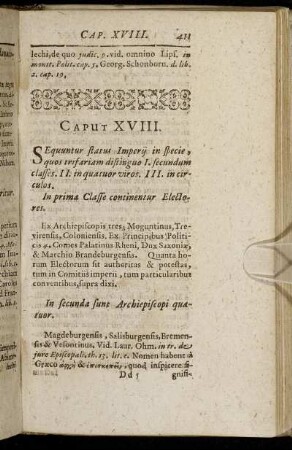 CAP. XVIII. 411
lechi, de quo judic. 9. vid. omnino Lips. in
monit. Polit. cap. 5. Georg. Schonborn. d. lib.
2. cap. 19.
CAPUT XVIII.
SEquuntur status Imperij in specie,
quos trifariam distinguo I. secundum
classes. II. in quatuor viros. III. in cir-
culos.
In prima Classe continentur Electo-
res.
Ex Archiepiscopis tres, Moguntinus, Tre-
virensis, Coloniensis, Ex Principibus Politi-
cis 4. Comes Palatinus Rheni, Dux Saxoniæ,
& Marchio Brandeburgensis. Quanta ho-
rum Electorum sit authoritas & potestas,
tum in Comitiis imperii, tum particularibus
conventibus, supra dixi.
In secunda sunt Archiepiscopi qua-
tuor.
Magdeburgensis, Salisburgensis, Bremen-
sis & Vesontinus. Vid. Laur. Ohm. in tr. de
jure Episcopali, th. 15. lit. c. Nomen habent à
Græco & quod inspicere si-
Dd 5 gnifi-